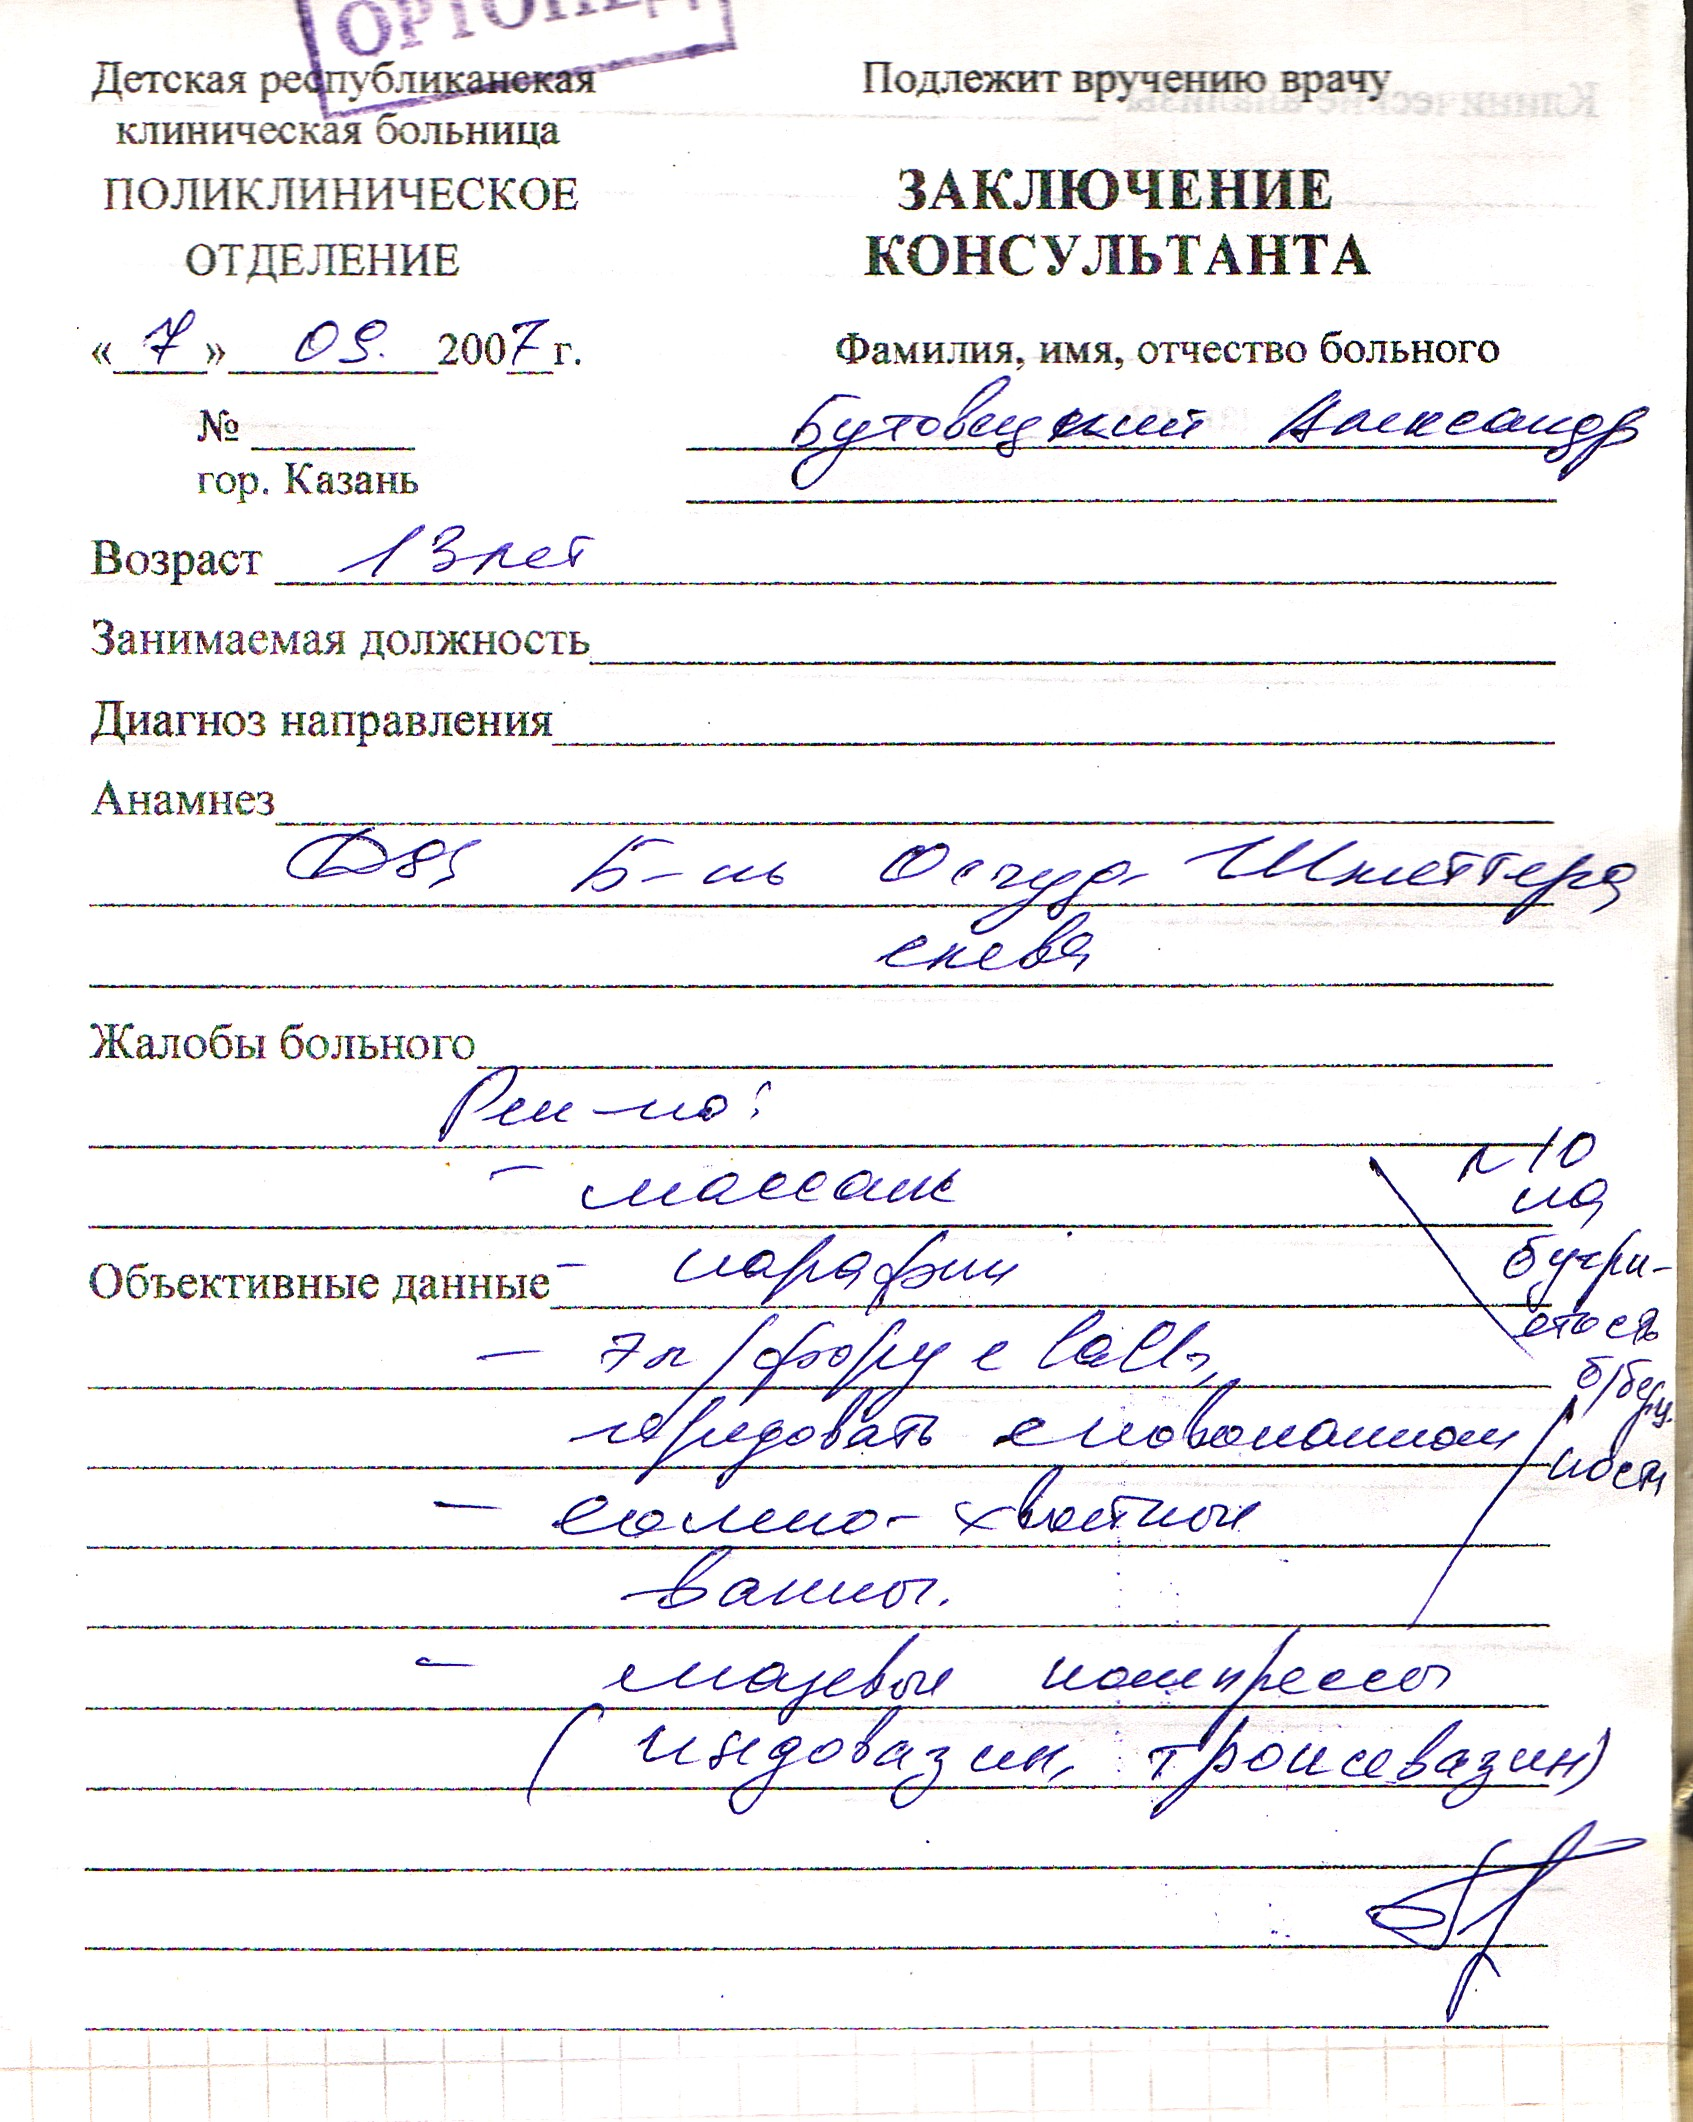 ОРТОПЕД
Детская республиканская
клиническая больница
ПОЛИКЛИНИЧЕСКОЕ
ОТДЕЛЕНИЕ
«7» 09. 2007 г.
№
гор. Казань
Подлежит вручению врачу
ЗАКЛЮЧЕНИЕ
КОНСУЛЬТАНТА
Фамилия, имя, отчество больного
Бутовецкий Александр
Возраст 13 лет
Занимаемая должность
Диагноз направления
Анамнез
Б-нь Осгуд-Шлаттера
слева
Жалобы больного
Рек-но:
- массаж
Объективные данные - парафин
- эл/форез с CaCl2,
чередовать с новокаином
- солено-хвойные
ванны.
- мазевые компрессы
(индовазин, троксевазин)
N 10
на
бугри-
стость
б/берц.
кости